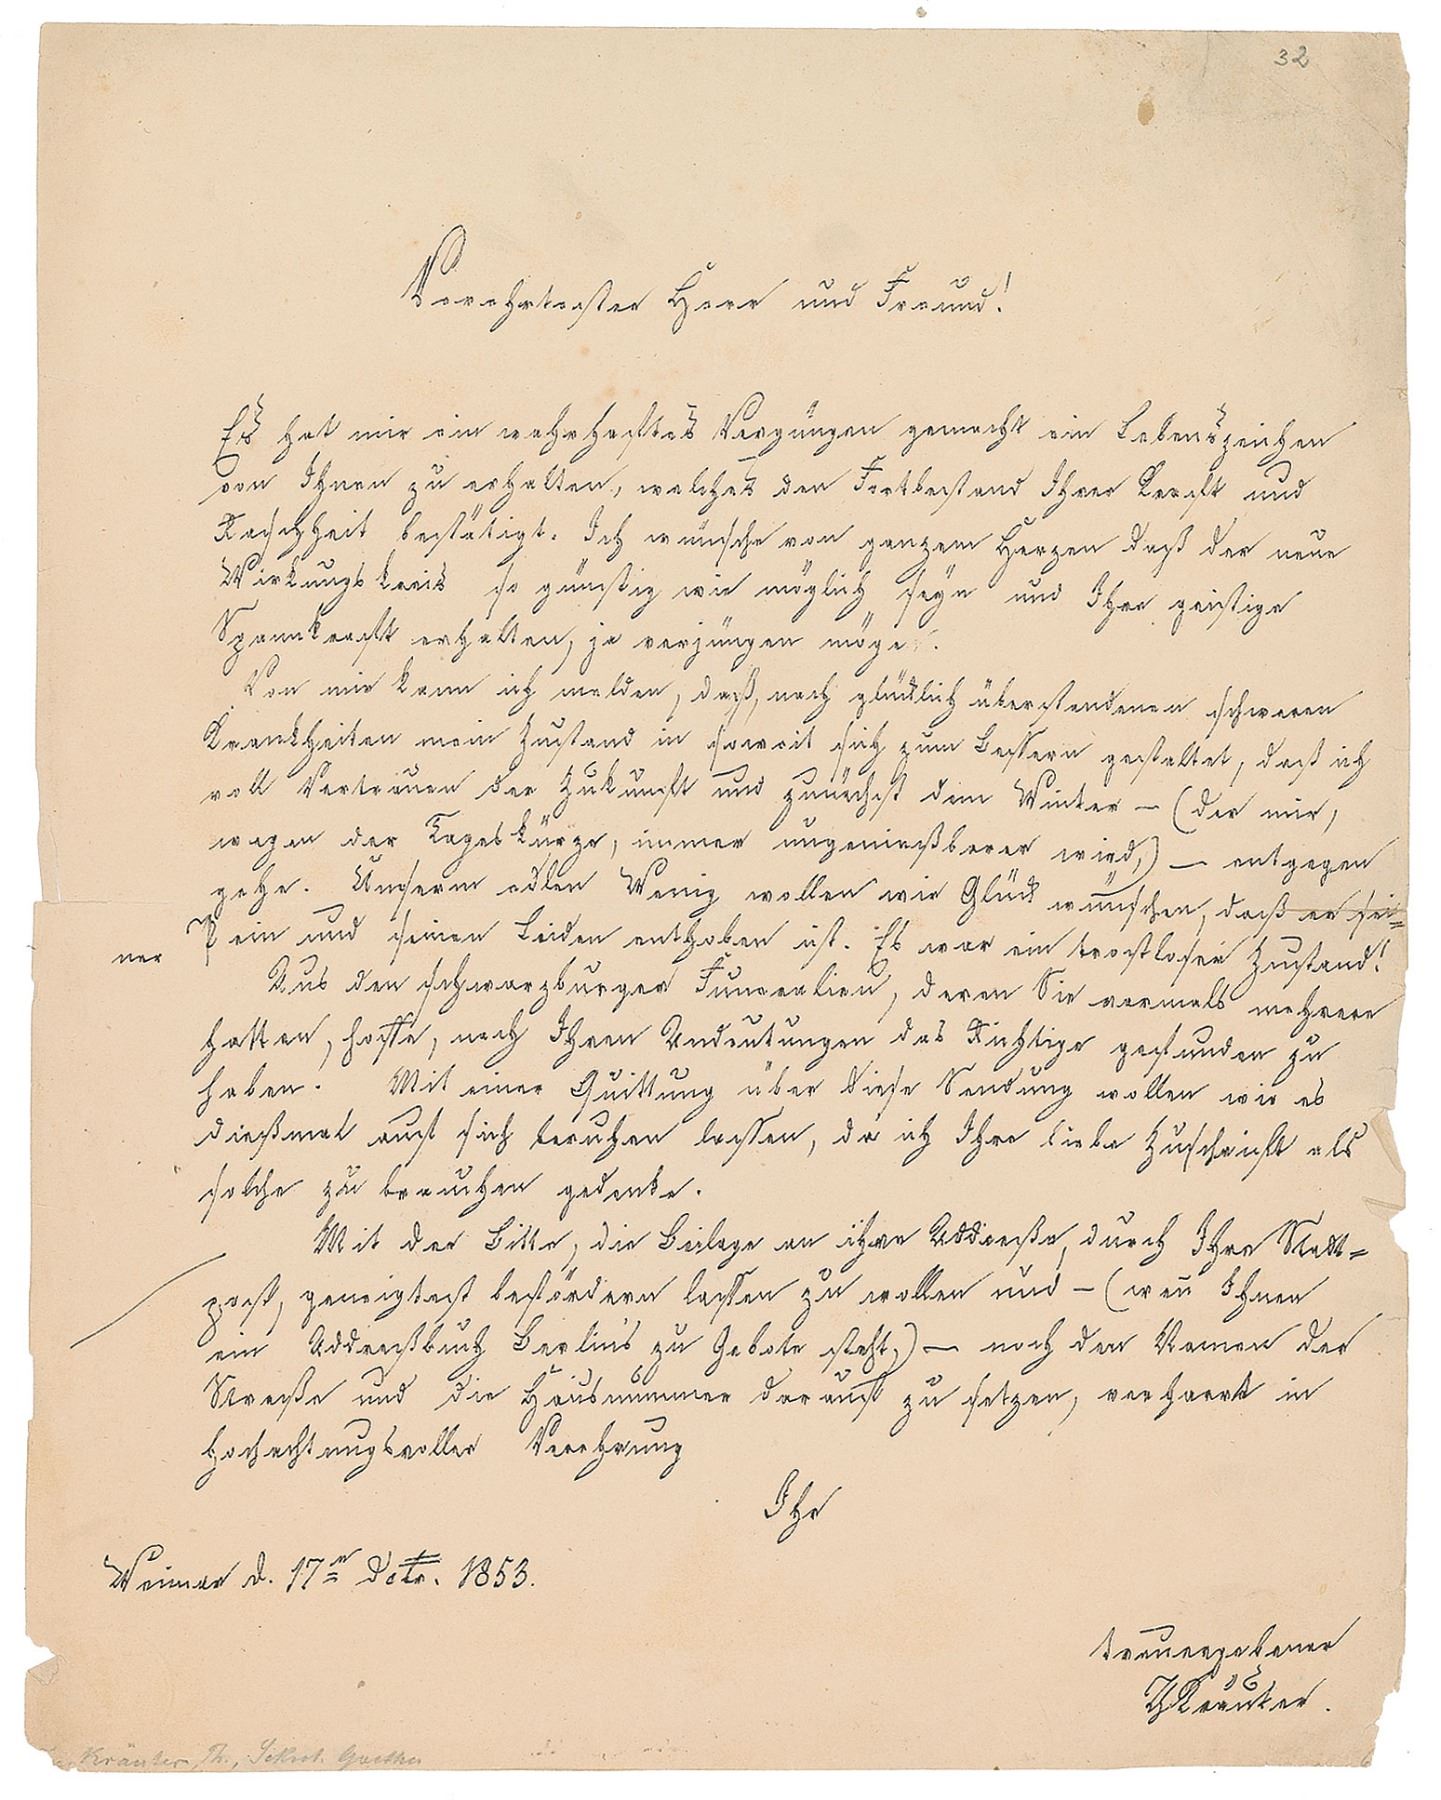 32
Verehrtester Herr und Freund!
Es hat mir ein wahrhaftes Vergnügen gemacht ein Lebenszeichen
von Ihnen zu erhalten, welches den Fortbestand Ihrer Kraft und
Raschheit bestätigt. Ich wünsche von ganzem Herzen daß der neue
Wirkungskreis so günstig wie möglich seyn und Ihre geistige
Spannkraft erhalten, ja verjüngen möge.
Von mir kann ich melden, daß, nach glücklich überstandenen schweren
Krankheiten mein Zustand in soweit sich zum Bessern gestaltet, daß ich
voll Vertrauen der Zukunft und zunächst dem Winter – (der mir,
wegen der Tageskürze, immer ungenießbarer wird,) – entgegen
gehe. Unserm edlen Wenig wollen wir Glück wünschen, daß er sei-
ner Pein und seinen Leiden enthoben ist. Es war ein trostloser Zustand!
Aus den schwarzburger Funeralien, deren Sie vormals mehrere
hatten, hoffe, nach Ihren Andeutungen das Richtige gefunden zu
haben. Mit einer Quittung über diese Sendung wollen wir es
dießmal auf sich beruhen lassen, da ich Ihre liebe Zuschrift als
solche zu brauchen gedenke.
Mit der Bitte, die Beilage an ihre Addresse, durch Ihre Stadt=
post, geneigtest befördern lassen zu wollen und – (wen̄ Ihnen
ein Addreßbuch Berlin's zu Gebote steht,) – noch den Namen der
Straße und die Hausnummer darauf zu setzen, verharrt in
hochachtungsvoller Verehrung
Ihr
Weimar d. 17n Octr. 1853.
treuergebener
ThKräuter.
Kräuter, Th., Sekret. Goethes